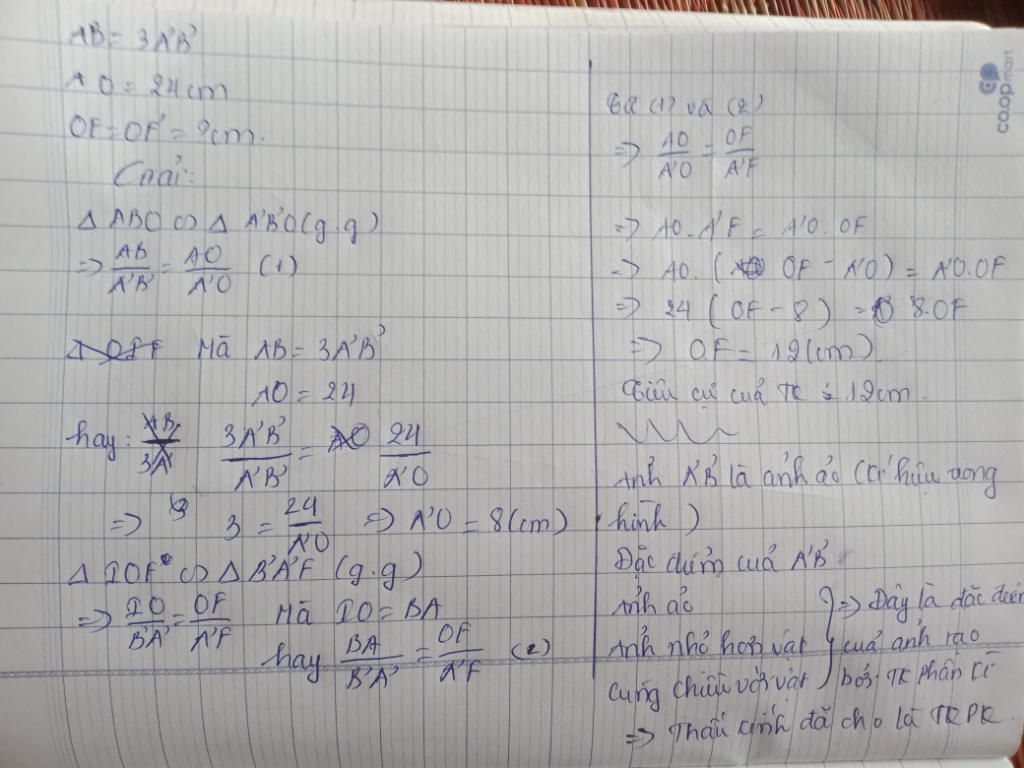 AB = 3A'B'
AO = 24cm
OF = OF' = ?cm.
Giải:
Δ ABO ∽ Δ A'B'O (g.g)
=> AB/A'B' = AO/A'O (1)
Mà AB = 3A'B'
AO = 24
hay: 3A'B'/A'B' = 24/A'O
=> 3 = 24/A'O => A'O = 8(cm)
Δ IOF ∽ Δ B'A'F (g.g)
=> IO/B'A' = OF/A'F Mà IO = BA
hay BA/B'A' = OF/A'F (2)
Từ (1) và (2)
=> AO/A'O = OF/A'F
=> AO.A'F = A'O.OF
=> AO.( OF - A'O) = A'O.OF
=> 24 ( OF - 8 ) = 8.OF
=> OF = 12(cm)
Tiêu cự của TK là 12cm.
Ảnh A'B' là ảnh ảo (Kí hiệu trong
hình )
Đặc điểm của A'B'
Ảnh ảo
Ảnh nhỏ hơn vật
Cùng chiều với vật
=> Đây là đặc điểm
của ảnh tạo
bởi TK phân kì
=> Thấu kính đã cho là TKPK.
co.opmart